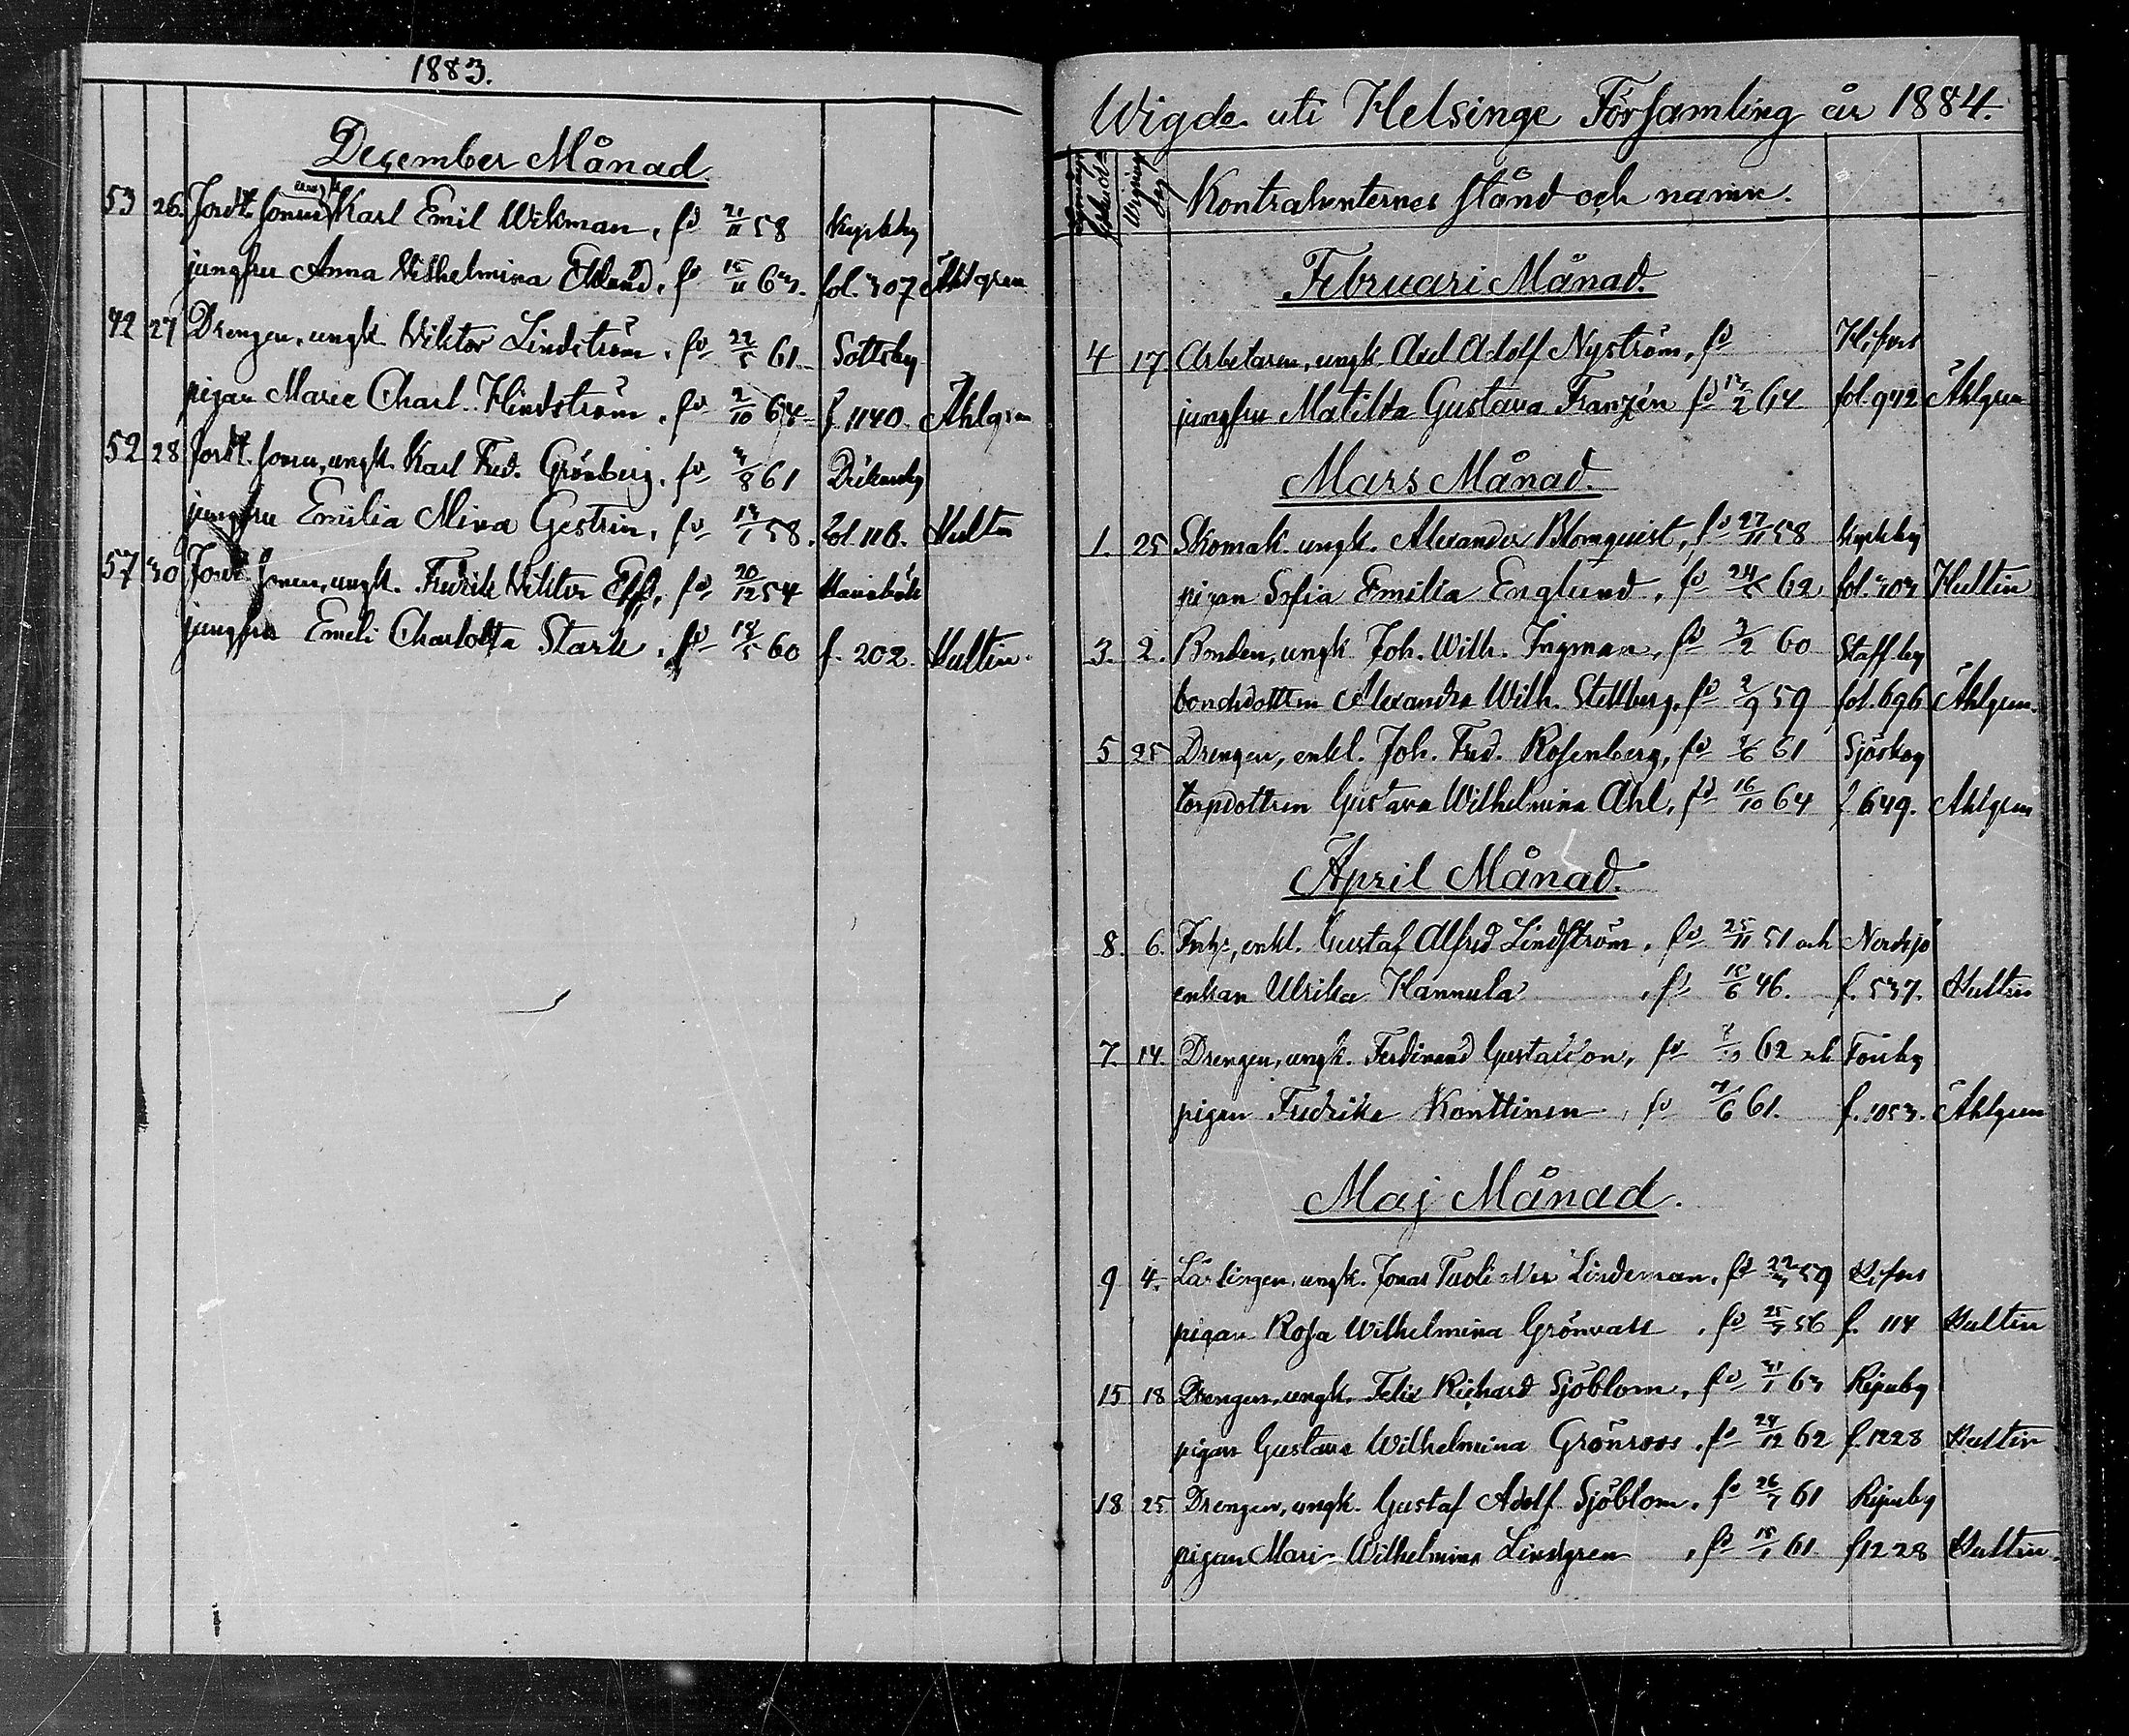 1883.
December Månad.
ungk
53 26. Jordt. sonen Karl Emil Wikman, fd 21/11 58 Kyrkby
jungfru Anna Wilhelmina Eklund, fd 15/11 63. fol. 307 Åhlgren
42 27 Drengen, ungk. Viktor Lindström, fd 22/5 61. Sottsby
pigan Marie Charl. Hindström, fd 2/10 64 f. 1140. Åhlgren
52 28 Jordt. sonen, ungk. Karl Fred. Grönberg, fd 3/8 61 Dickursby
jungfru Emilia Mina Gestrin, fd 13/1 58. fol. 116. Hultin
57 30 Jordt. sonen, ungk. Fredrik Viktor fd 20/12 54
jungfru Emeli Charlotta Stark, fd 18/5 60 f. 202. Hultin.
Wigde uti Helsinge Församling år 1884.
Kontrahenternes stånd och namn.
Februari Månad.
4 17. Arbetaren, ungk. Axel Adolf Nyström, fd H:fors
jungfru Matilda Gustava Franzén fd 13/2 64 fol. 942 Åhlgren
Mars Månad.
1. 25 Skomak. ungk. Alexander Blomqvist, fd 27/11 58 Kyrkby
pigan Sofia Emilia Englund, fd 62 fol. 303 Hultin
3. 2. Bonden, ungk. Joh. Wilh. Ingman, fd 3/2 60 Staffby
bondedottren Alexandra Wilh. Stellberg, fd 2/9 59 fol. 696 Åhlgren.
5 25 Drengen, enkl. Joh. Fred. Rosenberg, fd 61 Sjöskog
torpdottren Gustava Wilhelmina Ahl, fd 16/10 64 f 649. Åhlgren
April Månad.
8. 6. Inhs, enkl. Gustaf Alfred Lindström, fd 25/11 51 och Nordsjö
enkan Ulrika Hannula, fd 15/6 46. f. 537. Hultin
7. 14. Drengen, ungk. Ferdinand Gustafson, fd 62 och Fonsby
pigan Fredrika Konttinen, fd 7/6 61. f. 1053. Åhlgren
Maj Månad.
9 4. Lärlingen, ungk. Jonas Lindeman, fd 59 H:fors
pigan Rosa Wilhelmina Grönvall, fd 25/7 56 f. 114 Hultin
15 18 Drengen, ungk. Felix Richard Sjöblom, fd 31/1 63 Ripuby
pigan Gustava Wilhelmina Grönroos, fd 24/12 62 f. 1228 Hultin
18 25 Drengen, ungk. Gustaf Adolf Sjöblom, fd 26/7 61 Ripuby
pigan Mari Wilhelmina Lindgren, fd 15/1 61 f 1228 Hultin.